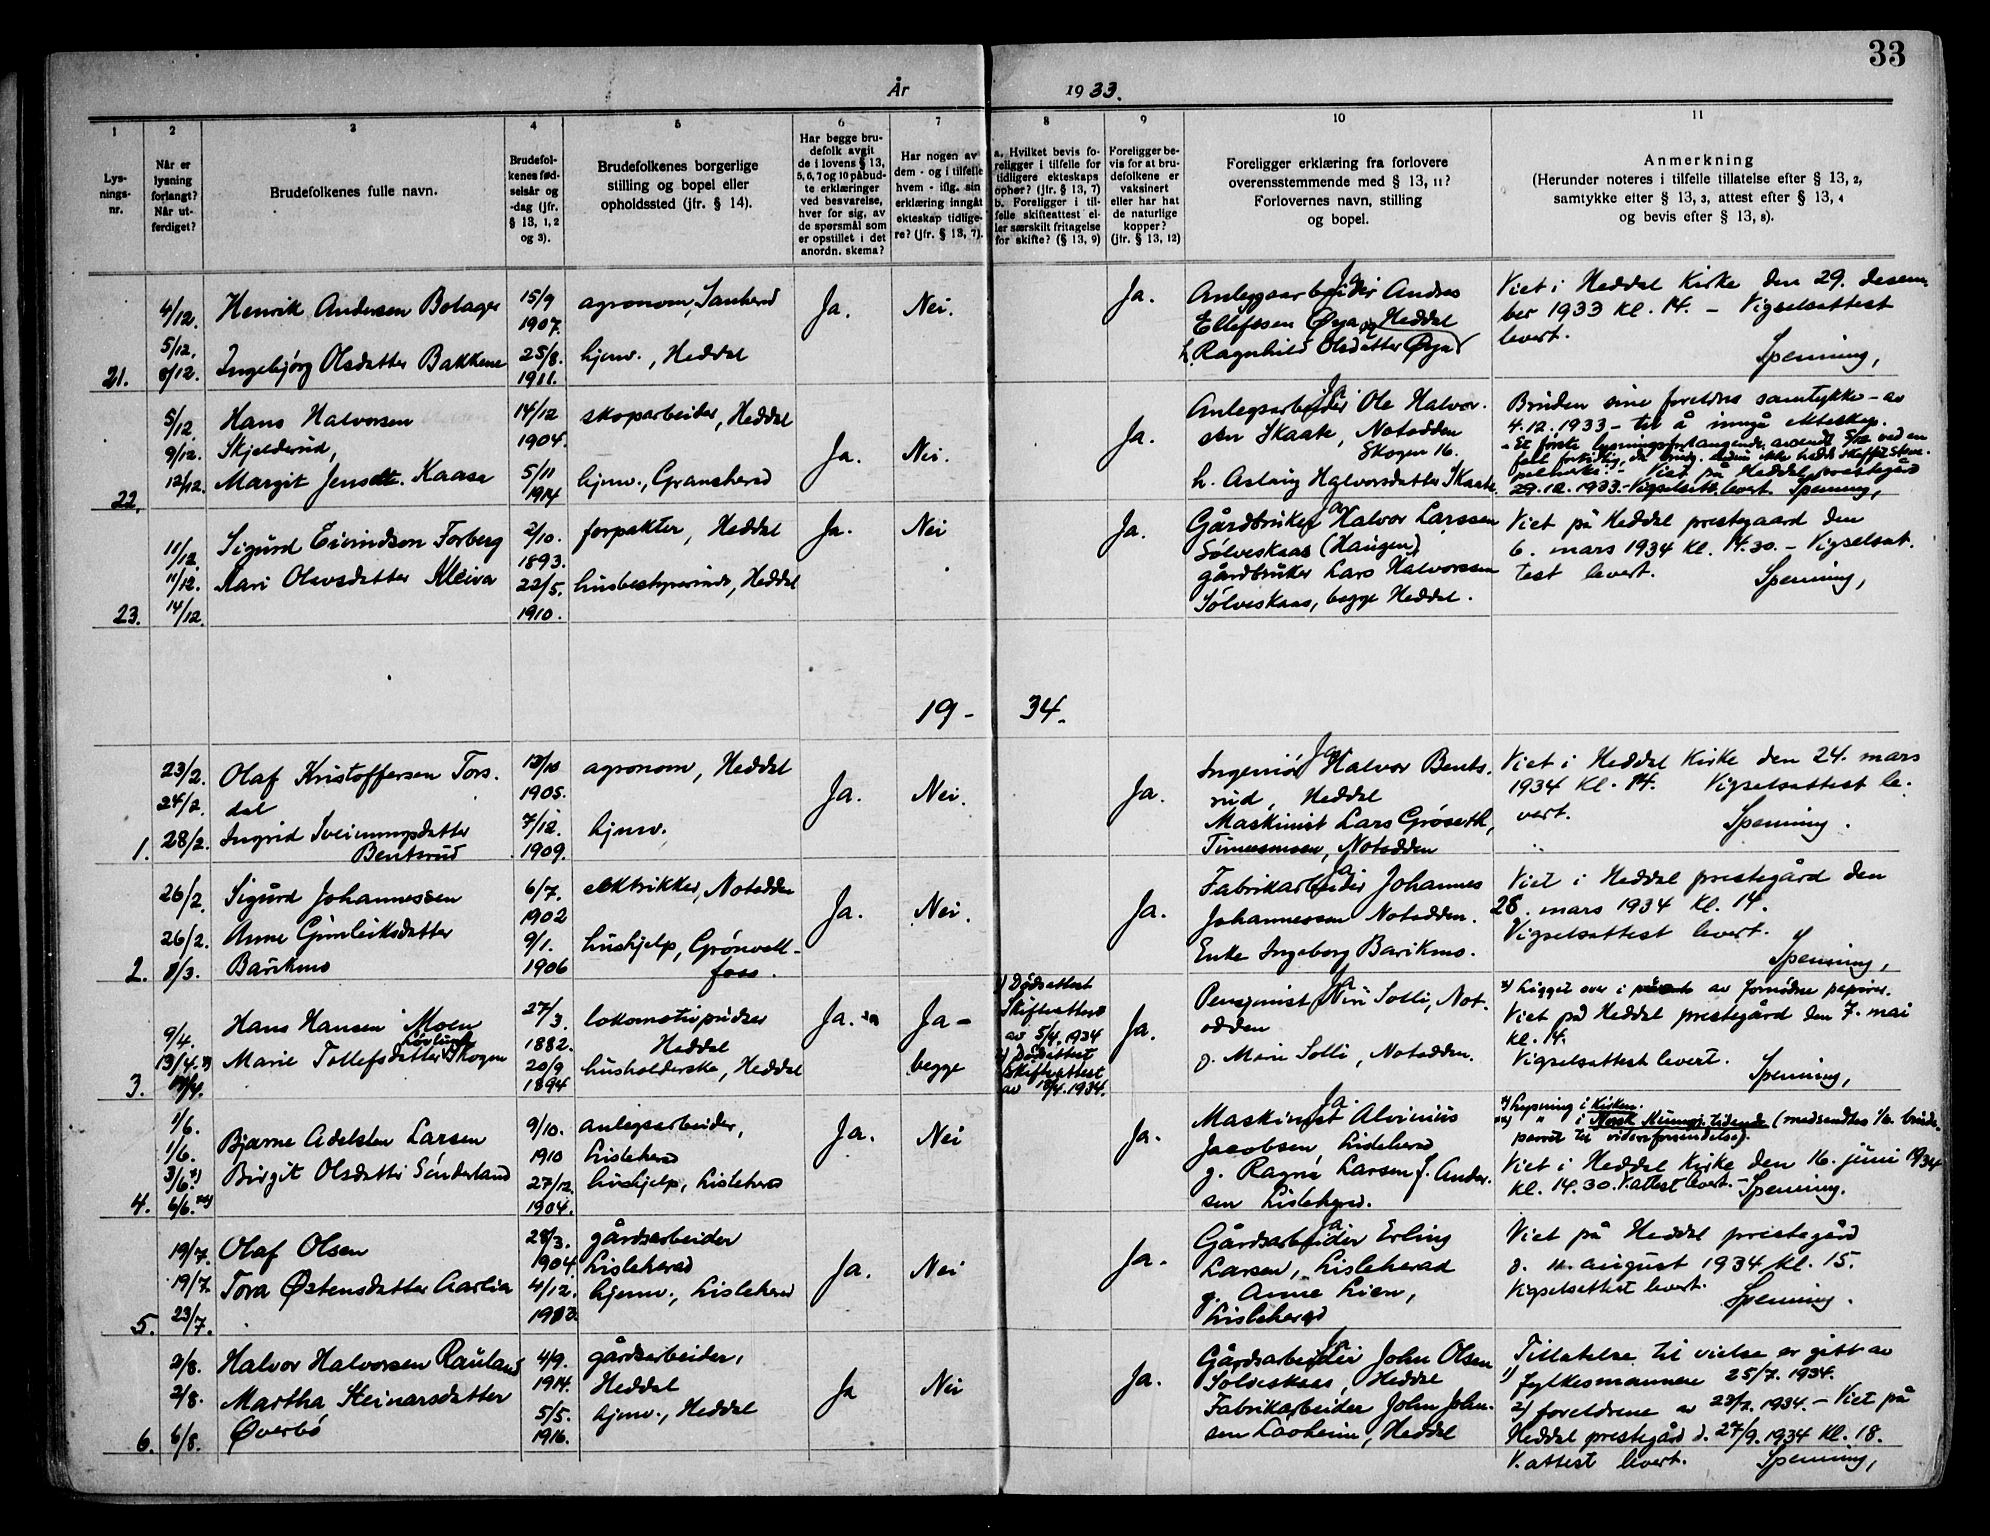 33
År 1933.
1 2 3 4 5 6 7 8 9 10 11
Lys-
nings-
nr.
Når er
lysning
forlangt?
Når ut-
ferdiget?
Brudefolkenes fulle navn.
Brudefol-
kenes fød-
selsår og
-dag (jfr.
§ 13, 1, 2
og 3).
Brudefolkenes borgerlige
stilling og bopel eller
opholdssted (jfr. § 14).
Har begge bru-
defolk avgit
de i lovens § 13,
5, 6, 7 og 10 påbud-
te erklæringer
ved besvarelse,
hver for sig, av
de spørsmål som
er opstillet i det
anordn. skema?
Har nogen av
dem - og i tilfelle
hvem - iflg. sin
erklæring inngåt
ekteskap tidlige-
re? (jfr. § 13, 7).
a. Hvilket bevis fo-
religger i tilfelle for
tidligere ekteskaps
ophør? (jfr. § 13, 7)
b. Foreligger i til-
felle skifteattest el-
ler særskilt fritagelse
for skifte? (§ 13, 9)
Foreligger be-
vis for at bru-
defolkene er
vaksinert
eller har hat
de naturlige
kopper?
(jfr. § 13, 12)
Foreligger erklæring fra forlovere
overensstemmende med § 13, 11?
Forlovernes navn, stilling
og bopel.
Anmerkning
(Herunder noteres i tilfelle tillatelse efter § 13, 2,
samtykke efter § 13, 3, attest efter § 13, 4
og bevis efter § 13, 8).
21.
4/12.
5/12.
8/12.
Henrik Andersen Bolager
Ingebjørg Olsdatter Bakkene
15/9
1907.
25/8.
1911.
agronom, Sauherad
hjemv., Heddal
Ja.
Nei.
Ja.
Ja
Anleggsarbeider Andres
Ellefssen Øya, Heddal
h. Ragnhild Olsdatter Øya
Viet i Heddal Kirke den 29. desem-
ber 1933 kl. 14. – Vigselsattest
levert.
Spenning,
22.
5/12
9/12.
12/12.
Hans Halvorsen
Skjelderud,
Margit Jensdtt. Kaasa
14/12
1904.
5/11
1914
skogarbeider, Heddal
hjemv., Gransherad
Ja.
Nei.
Ja.
Ja
Anlegsarbeider Ole Halvor-
sen Skaate, Notodden
Skogen 16.
h. Aslaug Halvorsdatter Skaate.
Bruden sine foreldres samtykke – av
4.12.1933 – til å inngå ekteskap.
Viet på Heddal prestegård
29.12.1933. – Vigselsatt. levert. Spenning,
23.
11/12.
11/12.
14/12.
Sigurd Eivindson Forberg
Kari Olavsdatter Kleiva
2/10.
1893.
22/5.
1910.
forpakter, Heddal
husbestyrerinde, Heddal
Ja.
Nei
Ja.
Ja
Gårdbruker Halvor Larssen
Sølveskaas (Haugen)
gårdbruker Lars Halvorssen
Sølveskaas, begge Heddal.
Viet på Heddal prestegaard den
6. mars 1934 kl. 14.30. – Vigselsat-
test levert.
Spenning,
19 – 34.
1.
23/2.
24/2
28/2.
Olaf Kristoffersen Tors-
dal
Ingrid Sveinungsdatter
Bentsrud
13/10
1905.
7/12.
1909.
agronom, Heddal
hjemv.
Ja.
Nei.
Ja.
Ja
Ingeniør Halvor Bents-
rud, Heddal
Maskinist Lars Grøseth,
Tinnesmoen, Notodden
Viet i Heddal Kirke den 24. mars
1934 kl. 14. Vigselsattest le-
vert.
Spenning.
2.
26/2.
26/2.
1/3.
Sigurd Johannessen
Anne Gunleiksdatter
Barikmo
6/7.
1902
9/1.
1906
elektrikker, Notodden
hushjelp, Grønvoll-
foss.
Ja.
Nei.
Ja.
Ja
Fabrikarbeider Johannes
Johannessen Notodden.
Enke Ingeborg Barikmo.
Viet i Heddal prestegård den
28. mars 1934 kl. 14.
Vigselsattest levert.
Spenning,
3.
9/4.
13/4.
Hans Hansen Moen
Løvlund
Marie Tollefsdatter Skogen
27/3.
1882.
20/9
1894
lokomotivpudser
Heddal
husholderske, Heddal
Ja.
Ja –
begge
1) Dødsattest
Skifteattest
av 5/4. 1934
2) Dødsattest
Skifteattest
av 13/4. 1934.
Ja.
Ja
Pensjonist Niri Solli, Not-
odden
g. Marie Solli, Notodden.
Ligget over i av fornødne papirer.
Viet på Heddal prestegård den 7. mai
kl. 14.
Vigselsattest levert.
Spenning,
4.
1/6.
1/6.
3/6. *)
6/6. **)
Bjarne Adelsten Larsen
Birgit Olsdatter Sønderland
9/10.
1910
27/12.
1904.
anlegsarbeider,
Lisleherad
hushjelp, Lisleherad
Ja.
Nei
Ja.
Ja.
Maskinist Alvinius
Jacobsen Lisleherad
g. Ragna Larsen f. Ander-
sen Lisleherad.
*) Lysning i Kirken.
**) " i Norsk Kunngj. tidende (medsendtes 1/6. brude-
parret til videreforsendelse).
Viet i Heddal Kirke den 16. juni 1934
kl. 14.30. V.attest levert. – Spenning.
5.
19/7.
19/7.
23/7.
Olaf Olsen
Tora Østensdatter Aarlia
28/3.
1904.
4/12.
1903.
gårdsarbeider
Lisleherad
hjemv., Lisleherad
Ja.
Nei
Ja.
Ja
Gårdsarbeider Erling
Larsen, Lisleherad
g. Anne Lien,
Lisleherad
Viet på Heddal prestegård
d. 11. august 1934 kl. 15.
Vigselsattest levert.
Spenning.
6.
2/8.
2/8.
6/8.
Halvor Halvorsen Rauland
Martha Steinarsdatter
Øverbø
4/9.
1914.
5/5.
1916.
gårdsarbeider,
Heddal
hjemv., Heddal
Ja
Nei
Ja.
Ja
Gårdsarbeider John Olsen
Sølveskaas, Heddal
Fabrikarbeider John John-
sen Lavheim, Heddal
Tillatelse til vielse er gitt av
1) fylkesmannen 25/7. 1934.
2) foreldrene av 23/7. 1934. – Viet på
Heddal prestegård d. 27/9. 1934 kl. 18.
V.attest levert.
Spenning,